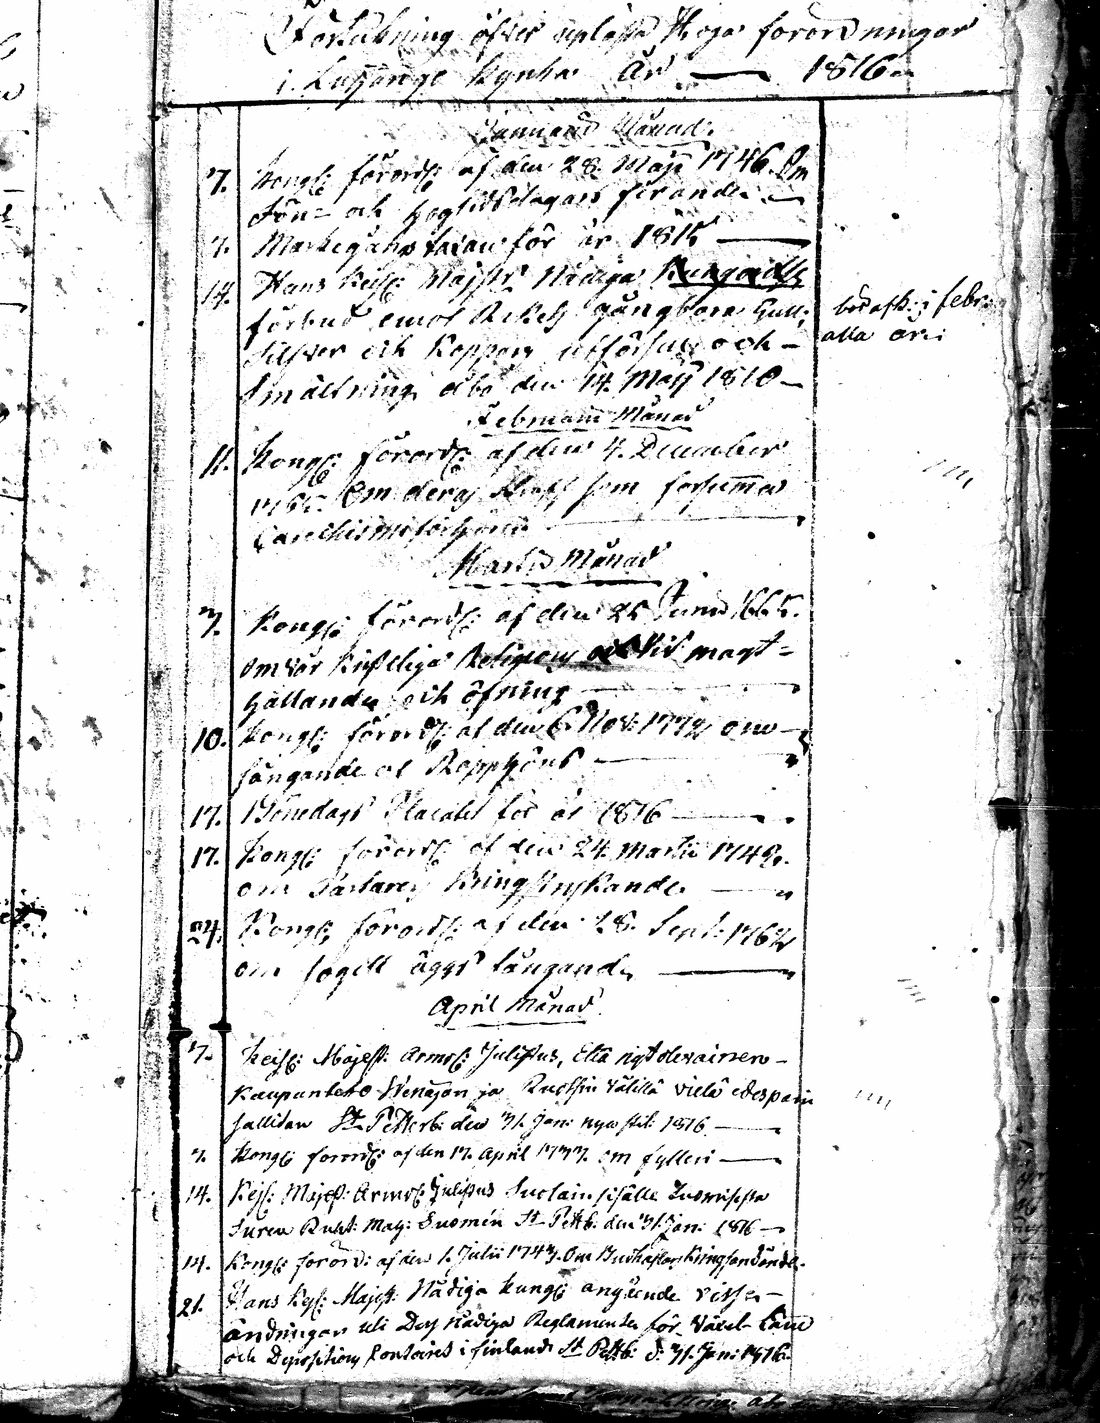 Förtekning öfver uplästa Höga förordningar
i Kyrka År — 1816
Januarii Månad:
7. Kongl: förordn: af den 28. Maji 1746. Om
Sön- och Högtidsdagars firande
7. Markegångs taxan för år 1815
14. Hans Keis: Majst:s Nådiga Kungörelse
förbud emot Rikets gångbara Guld,
Silfver och Koppars utförsel och
Smältning, Åbo den 14. Maij 1810
börafk: i febr:
alla år:
Februarii Månad
11. Kongl: förordn: af den 4. December
Om deras straff som försumma
Catechismi förhören
Martii Månad
3. Kongl: förordn: af den 25 Junii 1665.
om vår kristeliga Religions vid magt-
hållande och öfning
10. Kongl: förordn: af den 6 Nov: 1772 om
fångande af Rapphöns
17. Bönedags Placatet för år 1816
17. Kongl: förordn: af den 24. Martii 1743.
om Tartarers kringstrykande
24. Kongl: förordn: af den 28. Sept: 1762
om fogels äggs tångande
April Månad
7. Keis: Majest: Armol: Julistus, Että nyt olevainen
Kaupanteko Wenäjän ja Ruotsin välillä vielä edespäin
sallitan St Petterb: den 31. Jan: nya stil: 1816
7. Kongl: förordn: af den 17. April 1733. om fylleri
14. Keis: Majest: Armol: Julistus
Suren Ruht: Maij: Suomen St Pettb: den 31. Jan: 1816
14. Kongl: förord: af den 1. Julii 1743. Om Budkaflars Kringsändande
21. Hans Keis: Majest: Nådiga Kung: angående vissa
ändringar uti Dess Nådiga Reglemente för Växel- Låne
och Depositions Contoiret i Finland St Pettb: d: 31. Jan: 1816.